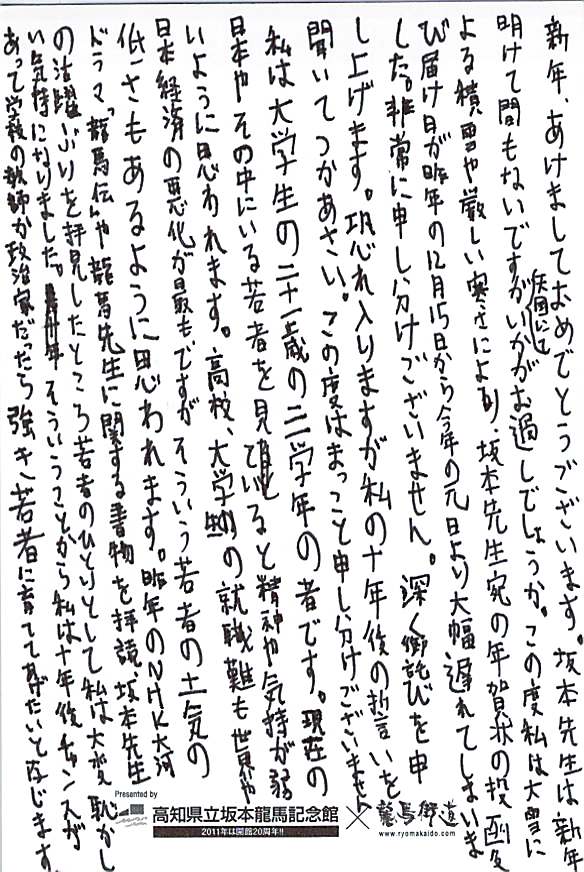 新年、あけましておめでとうございます。坂本先生は新年
明けて間もないですがいかがお過しでしょうか。この度私は大雪に
よる積雪や厳しい寒さにより、坂本先生宛の年賀状の投函及
び届け日が昨年の12月15日から今年の元日より大幅遅れてしまいま
した。非常に申し分けございません。深く御詫びを申
し上げます。恐れ入りますが私の十年後の誓言いを
聞いてつかあさい。この度はまっこと申し分けございません
私は大学生の二十一歳の二学年の者です。現在の
日本やその中にいる若者を見ていると精神や気持が弱
いように思われます。高校、大学の就職難も世界や
日本経済の悪化が最もですがそういう若者の士気の
低さもあるように思われます。昨年のNHK大河
ドラマ「龍馬伝」や龍馬先生に関する書物を拝読、坂本先生
の活躍ぶりを拝見したところ若者のひとりとして私は大変恥かし
い気持になりました。そういうことから私は十年後チャンスが
あって学校の教師か政治家だったら強き若者に育ててあげたいと存じます。
Presented by
高知県立坂本龍馬記念館
2011年は開館20周年!!
×
龍馬街道
www.ryomakaido.com